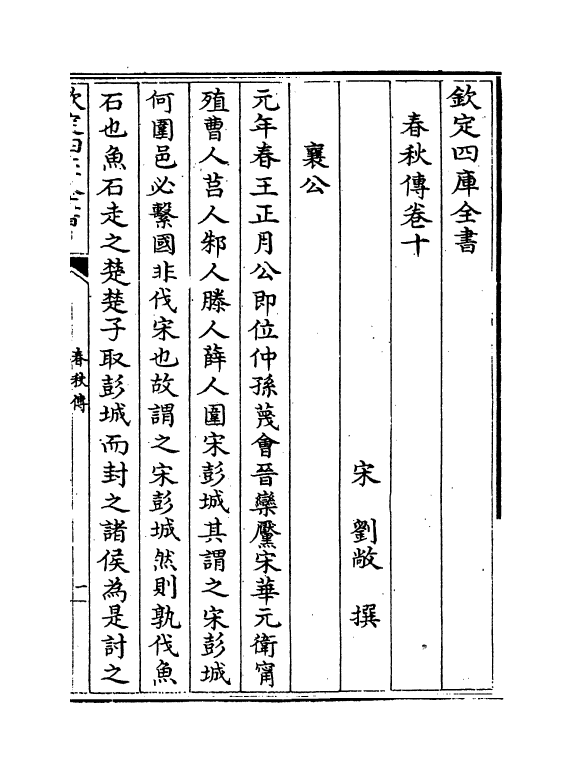 欽定四庫全書
春秋傳卷十
宋 劉敞 撰
襄公
元年春王正月公即位仲孫蔑會晉欒黶宋華元衛甯
殖曹人莒人邾人滕人薛人圍宋彭城其謂之宋彭城
何圍邑必繫國非伐宋也故謂之宋彭城然則孰伐魚
石也魚石走之楚楚子取彭城而封之諸侯為是討之
春秋傳
一